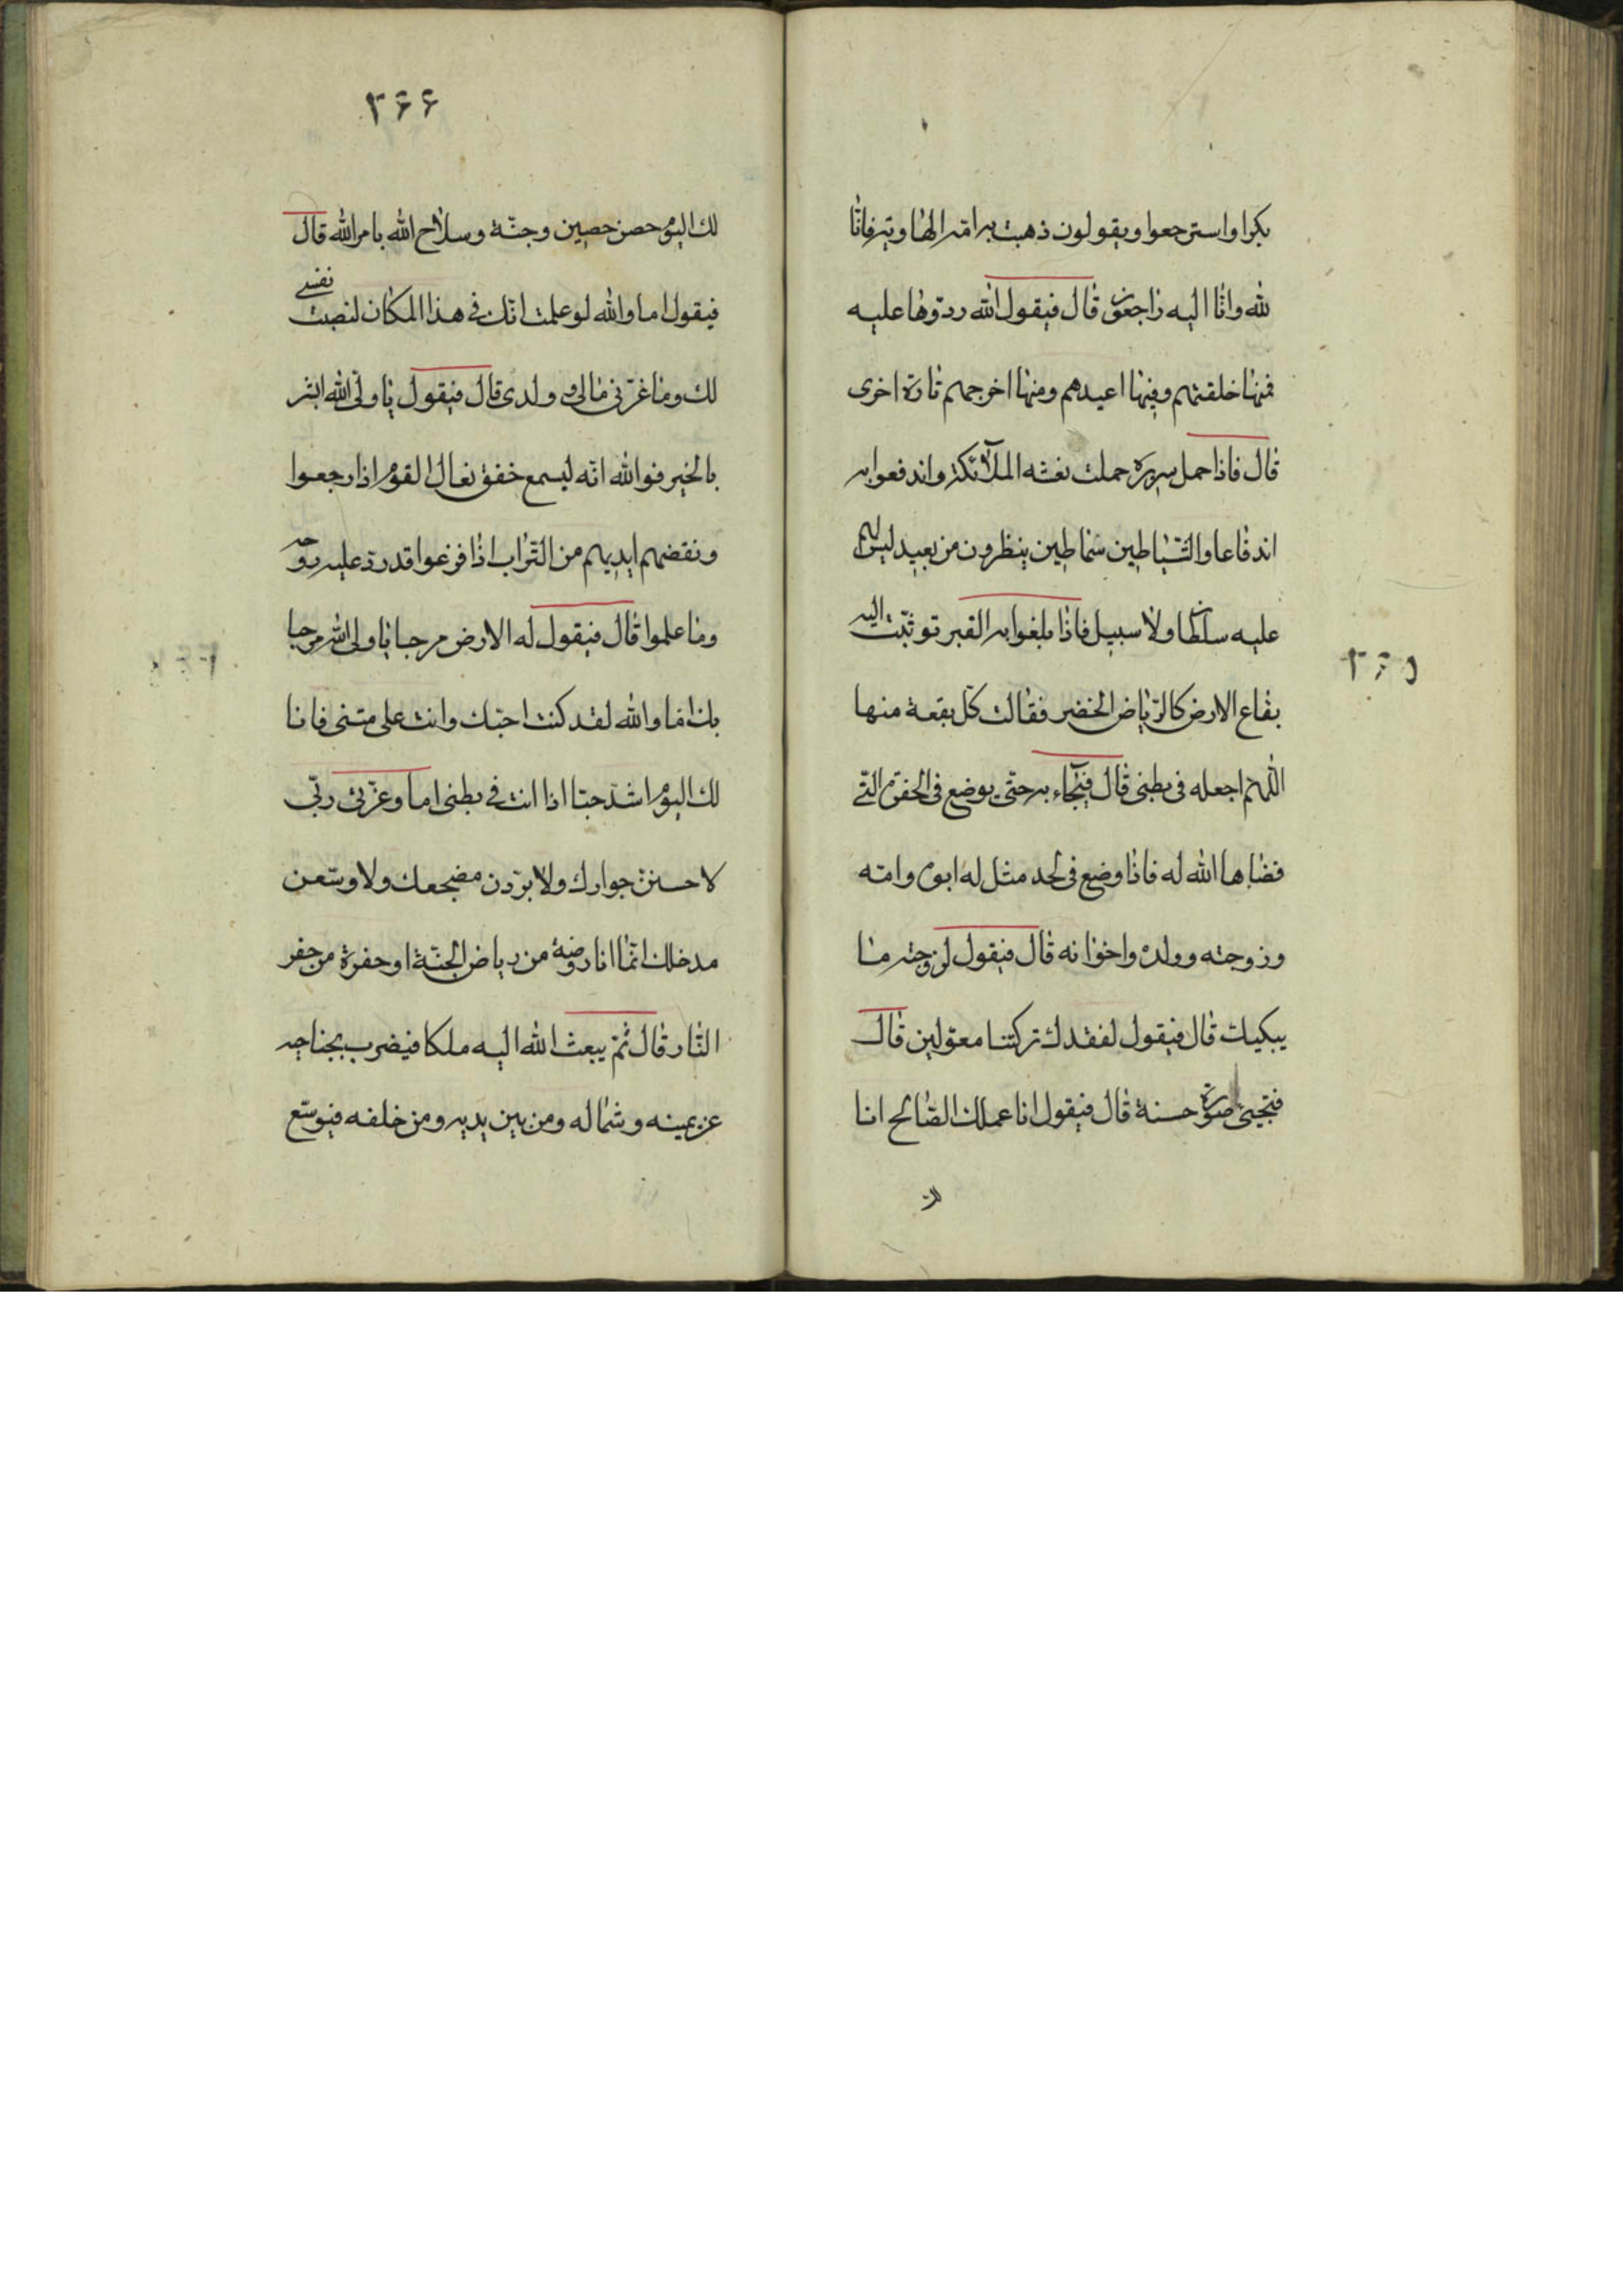 بكوا واسترجعوا ويقولون ذهبت به امّه الهاوية فانّا
لله وانّا اليه راجعون قال فيقول الله ردّوها عليه
فمنها خلقتهم وفيها اعيدهم ومنها اخرجهم تارة اخرى
قال فاذا حمل سريره حملت نعشه الملآئكة واندفعوا به
اندفاعا والشّياطين سماطين ينظرون من بعيد ليس لهم
عليه سلطان ولا سبيل فاذا بلغوا به القبر توثّبت اليه
بقاع الارض كالرّياض الخضر فقالت كلّ بقعة منها
اللّهمّ اجعله فى بطنى قال فيجآء به حتّى يوضع فى الحفرة الّتى
قضاها الله له فاذا وضع فى لحده مثل له ابوه وامّه
وزوجته وولده واخوانه قال فيقول لزوجته ما
يبكيك قال فيقول لفقدك تركتنا معولين قال
فتجيئ صورة حسنة قال فيقول انا عملك الصّالح انا
لك
٣٦٥
٣٦٦
لك اليوم حصن حصين وجنّة وسلاح الله بامر الله قال
فيقول اما والله لو علمت انّك فى هذا المكان لنصبت نفسى
لك وما غرّنى مالى و ولدى قال فيقول يا ولىّ الله ابشر
بالخير فوالله انّه ليسمع خفق نعال القوم اذا رجعوا
ونقضهم ايديهم من التّراب اذا فرغوا قد ردّ عليه روحه
وما علموا قال فيقول له الارض مرحبا يا ولى الله مرحبا
بك اما والله لقد كنت احبّك وانت على متنى فانا
لك اليوم اشدّ حبّا اذا انت فى بطنى اما وعزّة ربّى
لاحسننّ جوارك ولابرّدن مضجعك ولاوسّعن
مدخلك انّما انا روضة من رياض الجنّة او حفرة من حفر
النّار قال ثمّ يبعث الله اليه ملكا فيضرب بجناحيه
عن يمينه وشماله ومن بين يديه ومن خلفه فيوسّع